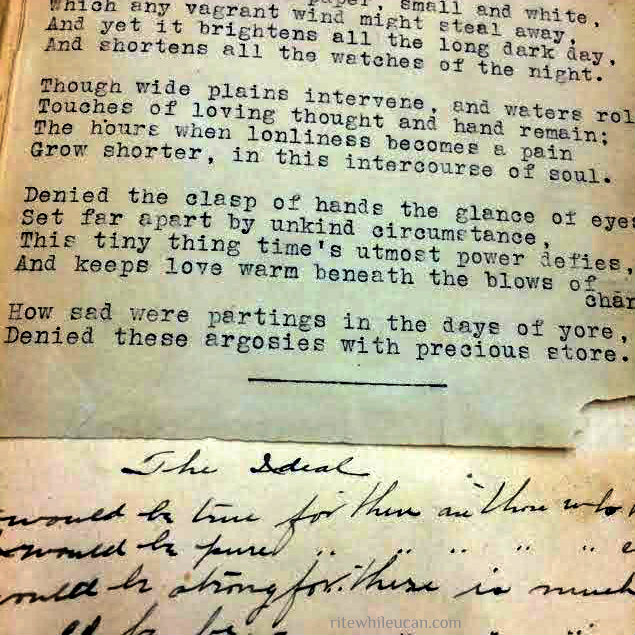 paper, small and white,
Which any vagrant wind might steal away,
And yet it brightens all the long dark day,
And shortens all the watches of the night.
Though wide plains intervene, and waters rol
Touches of loving thought and hand remain;
The hours when lonliness becomes a pain
Grow shorter, in this intercourse of soul.
Denied the clasp of hands the glance of eyes
Set far apart by unkind circumstance,
This tiny thing time's utmost power defies,
And keeps love warm beneath the blows of
chan
How sad were partings in the days of yore,
Denied these argosies with precious store.
The Ideal
would be true for there are those who
would be pure " " " "
would be strong for there is much
ritewhileucan.com